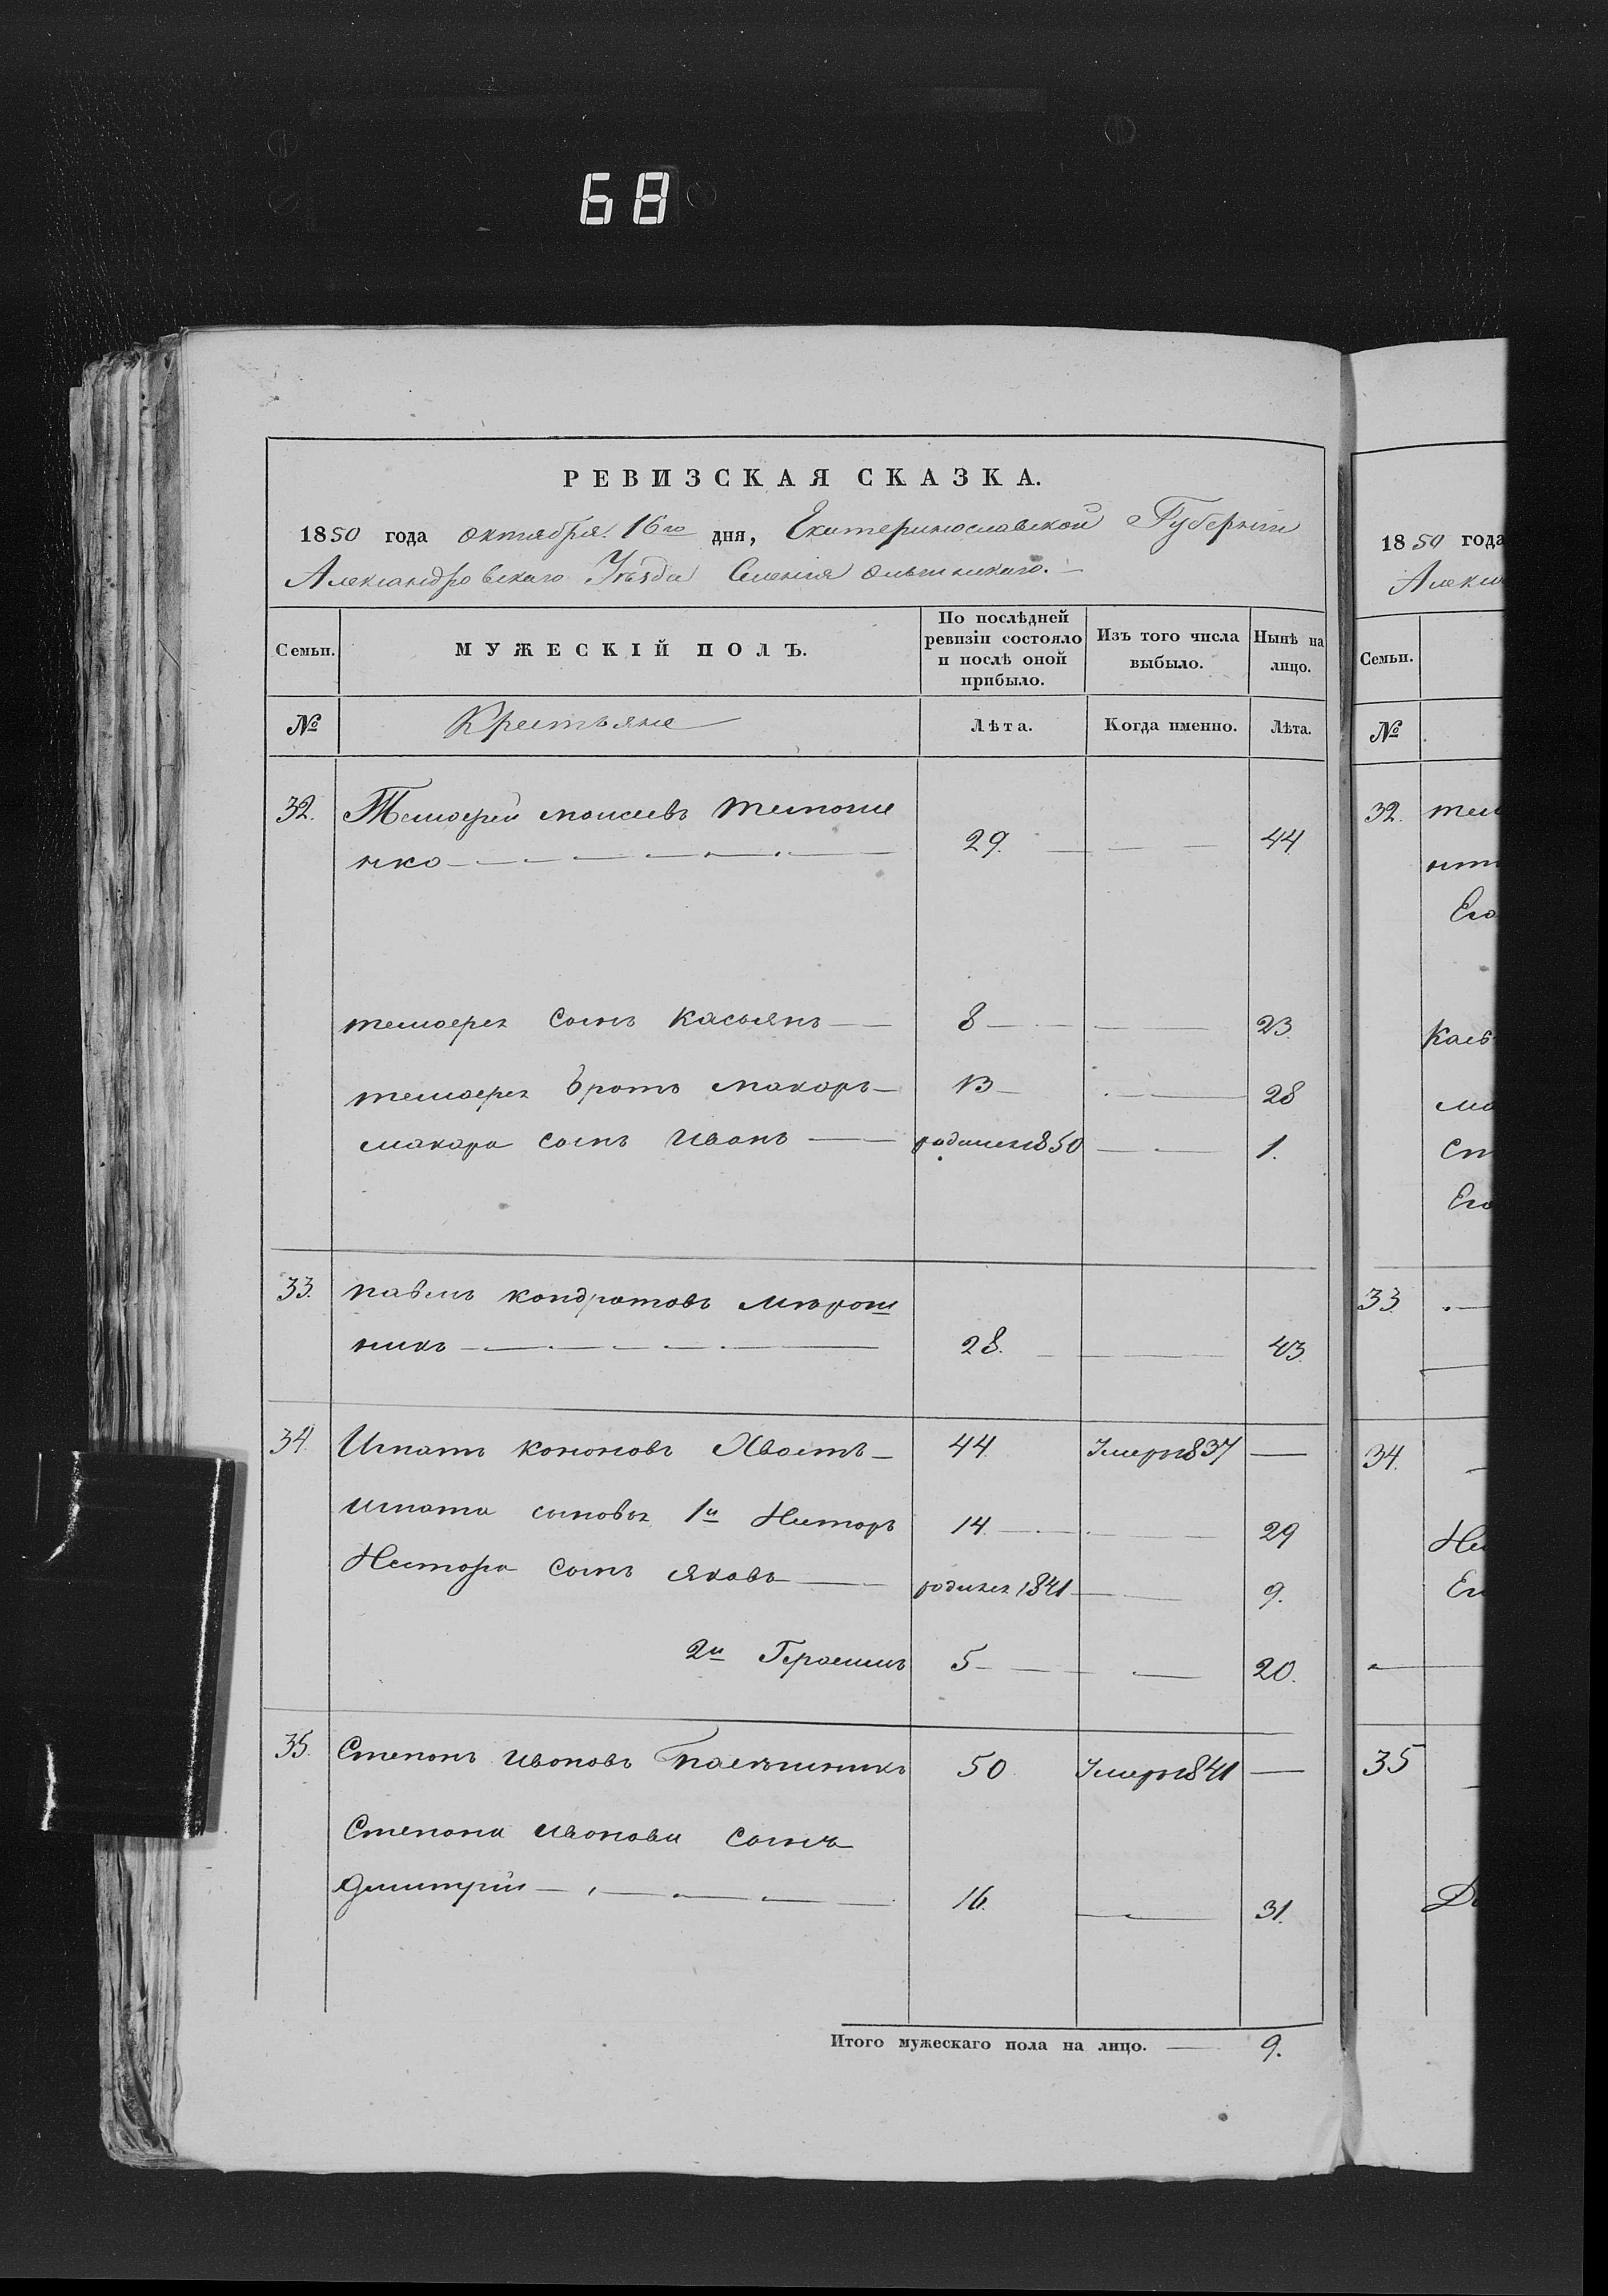 68
РЕВИЗСКАЯ СКАЗКА.
1850 года октября 16го дня, Екатеринославской Губерніи
Александровскаго Уѣзда Селенія
Семьи. МУЖЕСКІЙ ПОЛЪ. По послѣдней ревизіи состояло и послѣ оной прибыло. Изъ того числа выбыло. Нынѣ на лицо.
№ Крестьяне Лѣта. Когда именно. Лѣта.
32. Тимофей Моисеевъ
нко 29. 44
тимофея сынъ касьянъ 8 23
тимофея братъ макаръ 13 28
макара сынъ иванъ родился 1850 1.
33. павелъ кондратовъ мирош
никъ 28. 43
34. Игнатъ кононовъ Хвостъ 44 Умеръ 1837
игната сыновья 1й Несторъ 14 29
Нестора сынъ яковъ родился 1841 9.
2й Герасимъ 5 20.
35. Степанъ ивановъ 50 Умеръ 1841
Степана иванова сынъ
дмитрій 16. 31.
Итого мужескаго пола на лицо. 9.
1850 года
Семьи.
№
32.
Его
33
34.
35